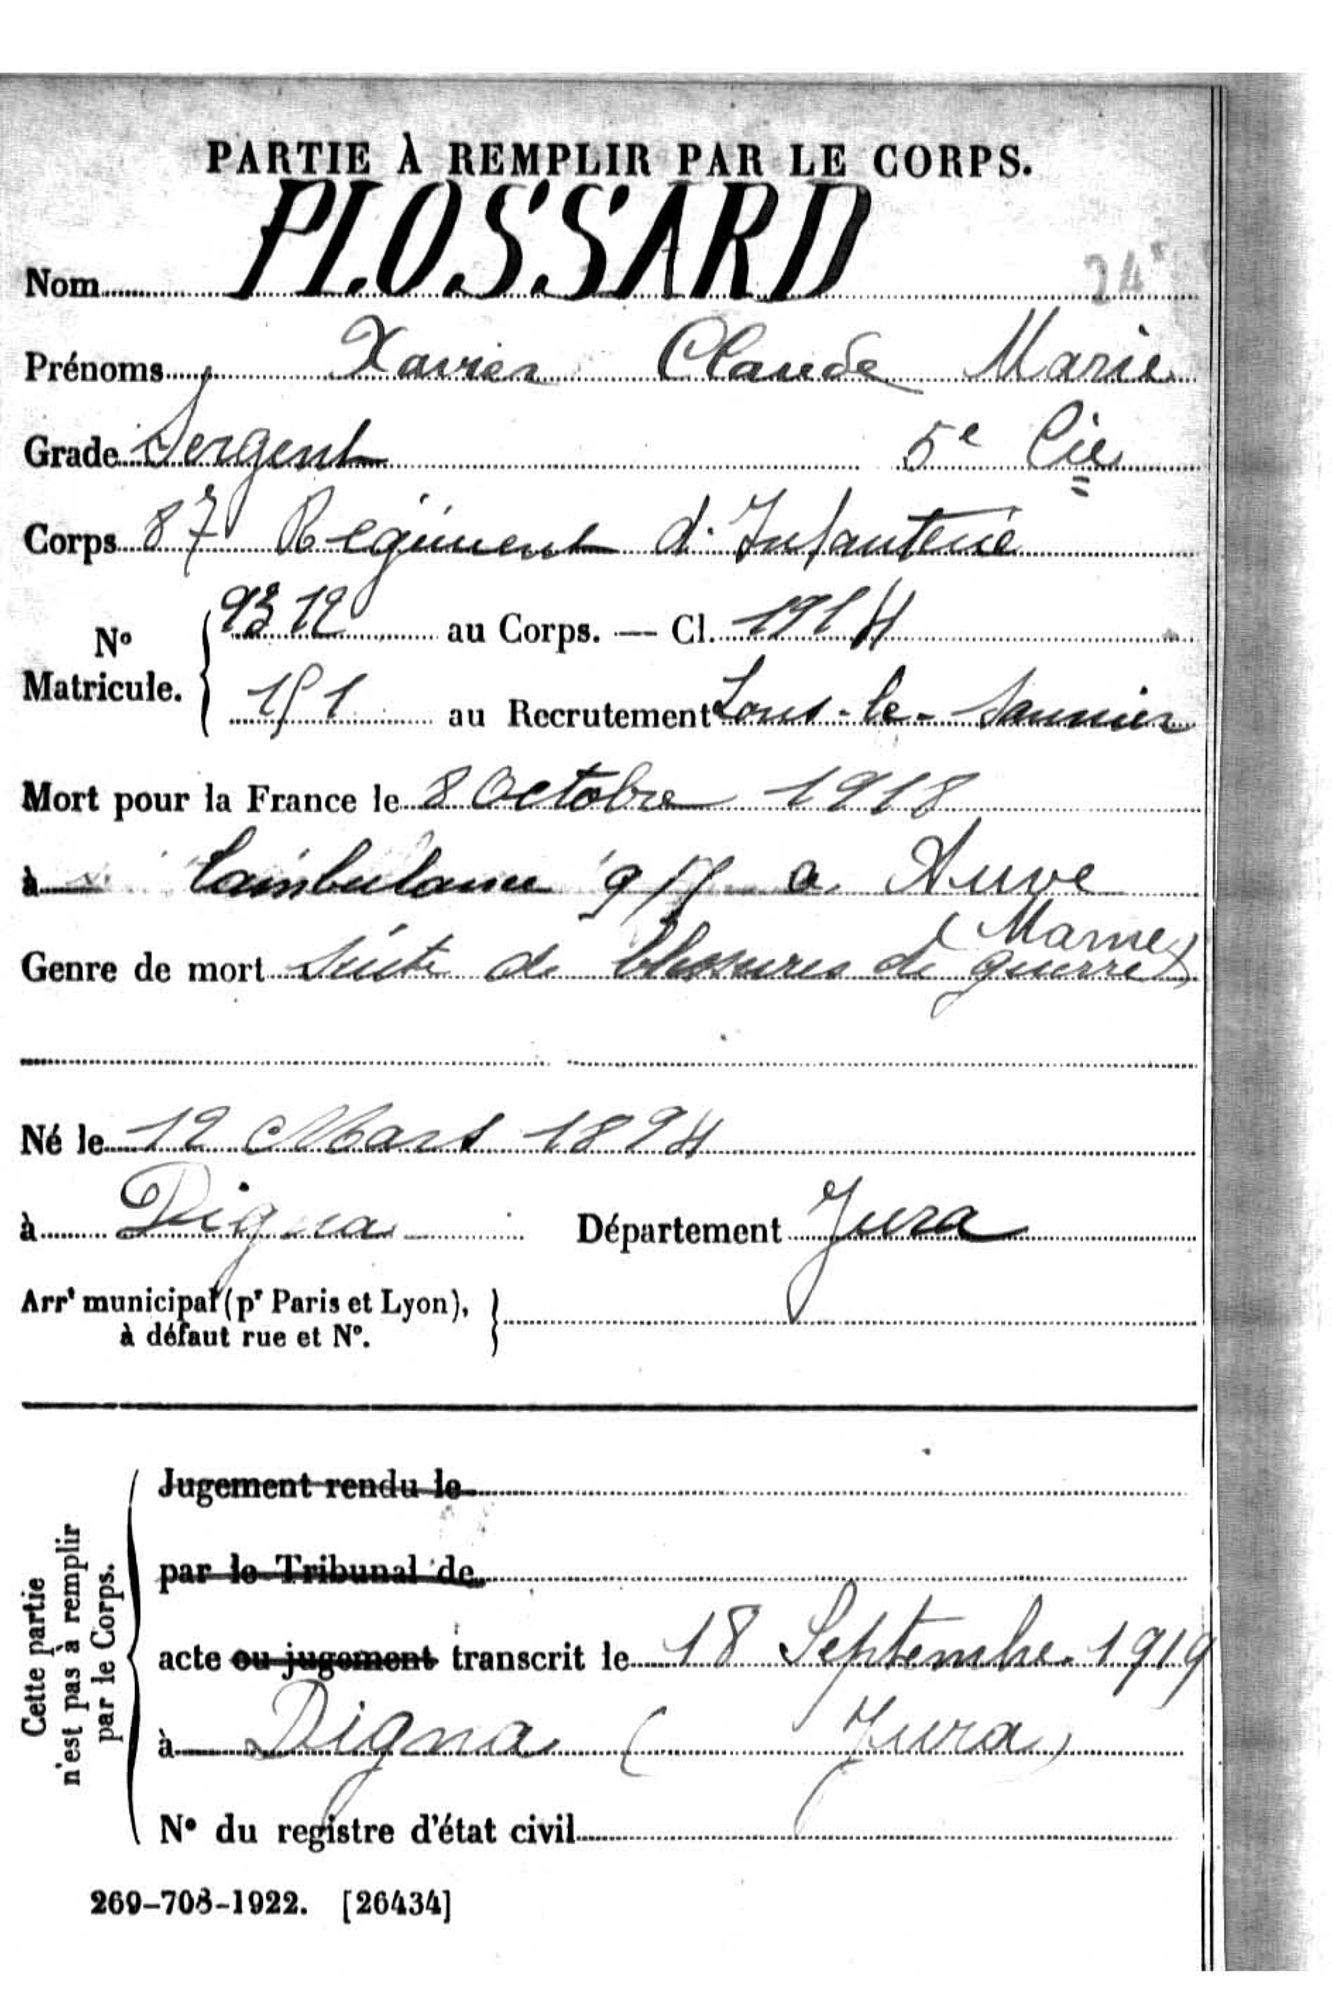 PARTIE À REMPLIR PAR LE CORPS.
Nom PLOSSARD 24
Prénoms Xavier Claude Marie
Grade Sergent 5e Cie
Corps 87 Régiment d'Infanterie
No Matricule. 9312 au Corps. — Cl. 1914
151 au Recrutement Lons-le-Saunier
Mort pour la France le 8 Octobre 1918
à l'ambulance à Auve
(Marne)
Genre de mort suite de blessures de guerre
Né le 12 Mars 1894
à Digna Département Jura
Arrt municipal (pr Paris et Lyon),
à défaut rue et No.
Cette partie
n'est pas à remplir
par le Corps.
Jugement rendu le
par le Tribunal de
acte ou jugement transcrit le 18 Septembre 1919
à Digna (Jura)
No du registre d'état civil
269-708-1922. [26434]